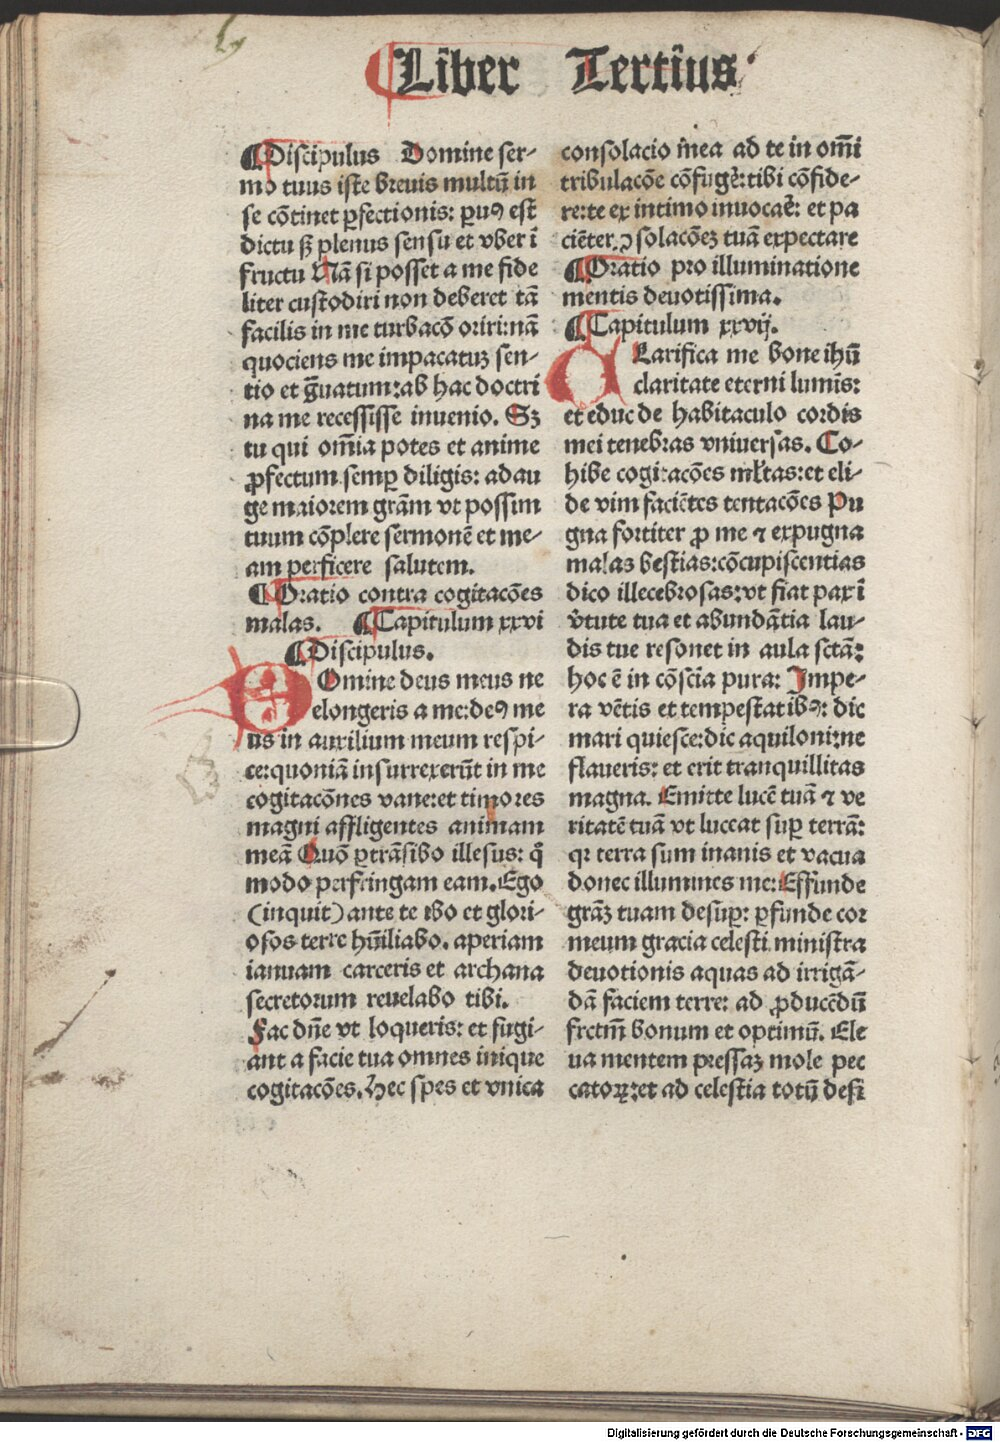 Liber Tertius
¶Discipulus Domine ser-
mo tuus iste breuis multũ in
se cõtinet ꝑfectionis: ꝑuꝰ est
dictu sꝫ plenus sensu et vber ĩ
fructu Nã si posset a me fide
liter custodiri non deberet tã
facilis in me turbacõ oriri:nã
quociens me impacatuꝫ sen-
tio et g̃uatum:ab hac doctri
na me recessisse inuenio. Sꝫ
tu qui om̃ia potes et anime
ꝓfectum semꝑ diligis: adau
ge maiorem grãm vt possim
tuum cõplere sermonẽ et me-
am perficere salutem.
¶Oratio contra cogitacões
malas. ¶Capitulum xxvi
¶Discipulus.
DOmine deus meus ne
elongeris a me:deꝰ me
us in auxilium meum respi-
ce:quoniã insurrexerũt in me
cogitacõnes vane:et timores
magni affligentes animam
meã Quõ ꝑtrãsibo illesus: q̊
modo perfringam eam. Ego
(inquit) ante te ibo et glori-
osos terre hũiliabo. aperiam
ianuam carceris et archana
secretorum reuelabo tibi.
Fac dñe vt loqueris: et fugi-
ant a facie tua omnes inique
cogitacões. Hec spes et vnica
consolacio m̃ea ad te in om̃i
tribulacõe cõfugẽ: tibi cõfide-
re:te ex intimo inuocaẽ: et pa
ciẽter ↄsolacõeꝫ tuã expectare
¶Oratio pro illuminatione
mentis deuotissima.
¶Capitulum xxvij.
CLarifica me bone ihũ
claritate eterni lumĩs:
et educ de habitaculo cordis
mei tenebras vniuersas. Co-
hibe cogitacões ml̃tas:et eli-
de vim faciẽtes tentacões Pu
gna fortiter ꝓ me ⁊ expugna
malas bestias:cõcupiscentias
dico illecebrosas:vt fiat pax ĩ
ṽtute tua et abundãtia lau-
dis tue resonet in aula sctã:
hoc ẽ in cõsciã pura: Impe-
ra vẽtis et tempestatibꝰ: dic
mari quiesce:dic aquiloni:ne
flaueris: et erit tranquillitas
magna. Emitte lucẽ tuã ⁊ ve
ritatẽ tuã vt luceat suꝑ terrã:
qꝛ terra sum inanis et vacua
donec illumines me: Effunde
grãꝫ tuam desuꝑ: ꝑfunde cor
meum gracia celesti ministra
deuotionis aquas ad irrigã-
dã faciem terre: ad ꝓducẽdũ
frctm̃ bonum et optimũ. Ele
ua mentem pressaꝫ mole pec
catoꝝ:et ad celestia totũ desi
Digitalisierung gefördert durch die Deutsche Forschungsgemeinschaft - DFG